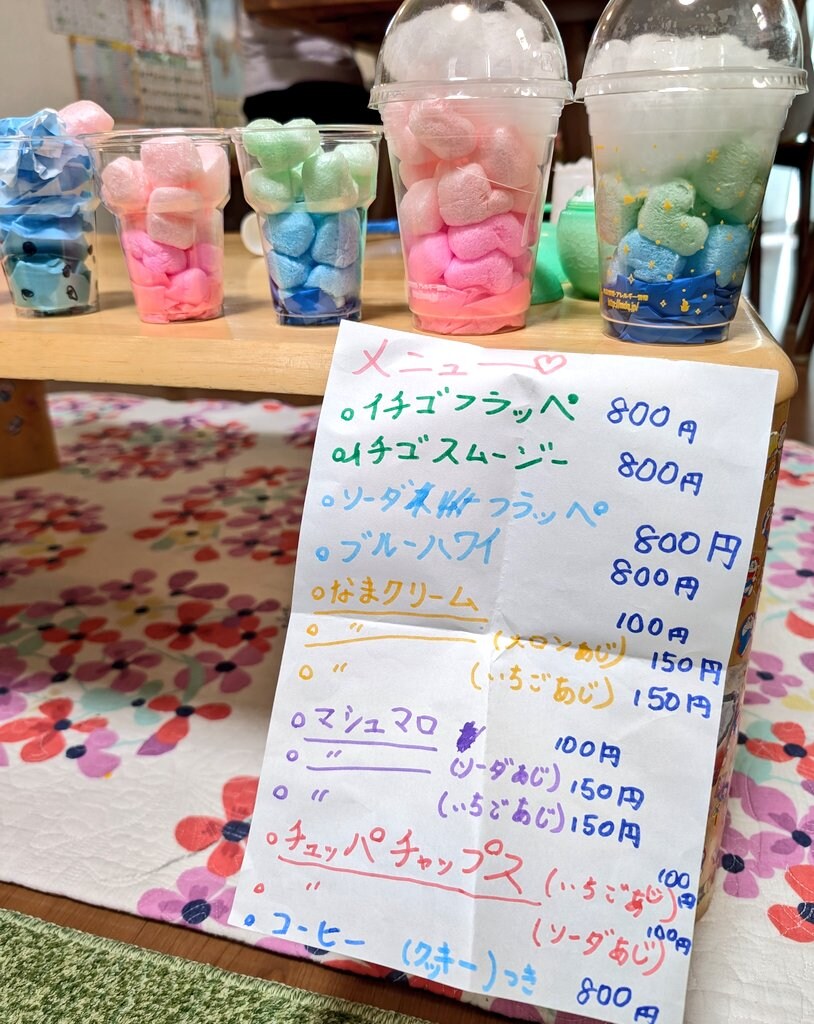 メニュー♡
○イチゴフラッペ 800円
○イチゴスムージー 800円
○ソーダフラッペ 800円
○ブルーハワイ 800円
○なまクリーム 100円
○〃 (メロンあじ) 150円
○〃 (いちごあじ) 150円
○マシュマロ 100円
○〃 (ソーダあじ) 150円
○〃 (いちごあじ) 150円
○チュッパチャップス (いちごあじ) 100円
○〃 (ソーダあじ) 100円
○コーヒー (クッキー)つき 800円